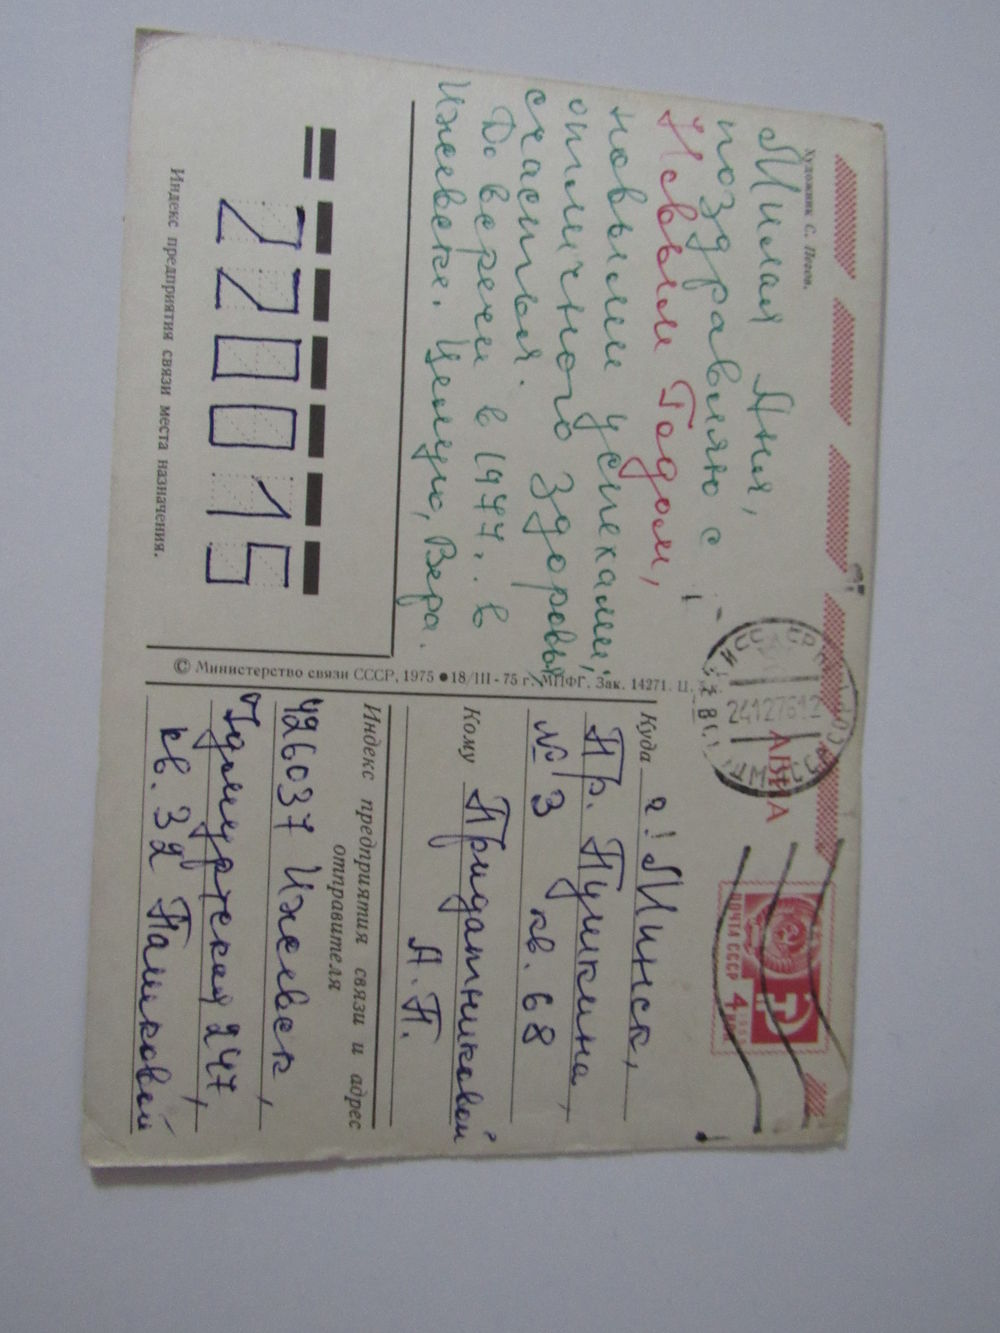 Художник С. Попов.
Милая Аня,
поздравляю с
Новым Годом,
новыми успехами,
отличного здоровья,
счастья.
До встречи в 1977г. в
Ижевске. Целую, Вера.
220015
Индекс предприятия связи места назначения.
© Министерство связи СССР, 1975 ● 18/III - 75 г. МПФГ. Зак. 14271. Ц.
АВИА
ПОЧТА СССР 4 КОП
24127612
МИНСК
Куда г. Минск,
Пр. Пушкина,
№ 3 кв. 68
Кому Придатниковой
А. П.
Индекс предприятия связи и адрес
отправителя
426037 Ижевск,
Удмуртская 247,
кв. 32 Пашковой